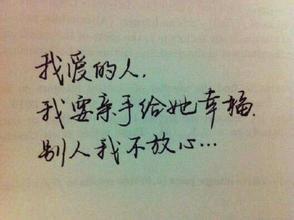 我爱的人，
我要亲手给她幸福。
别人我不放心…